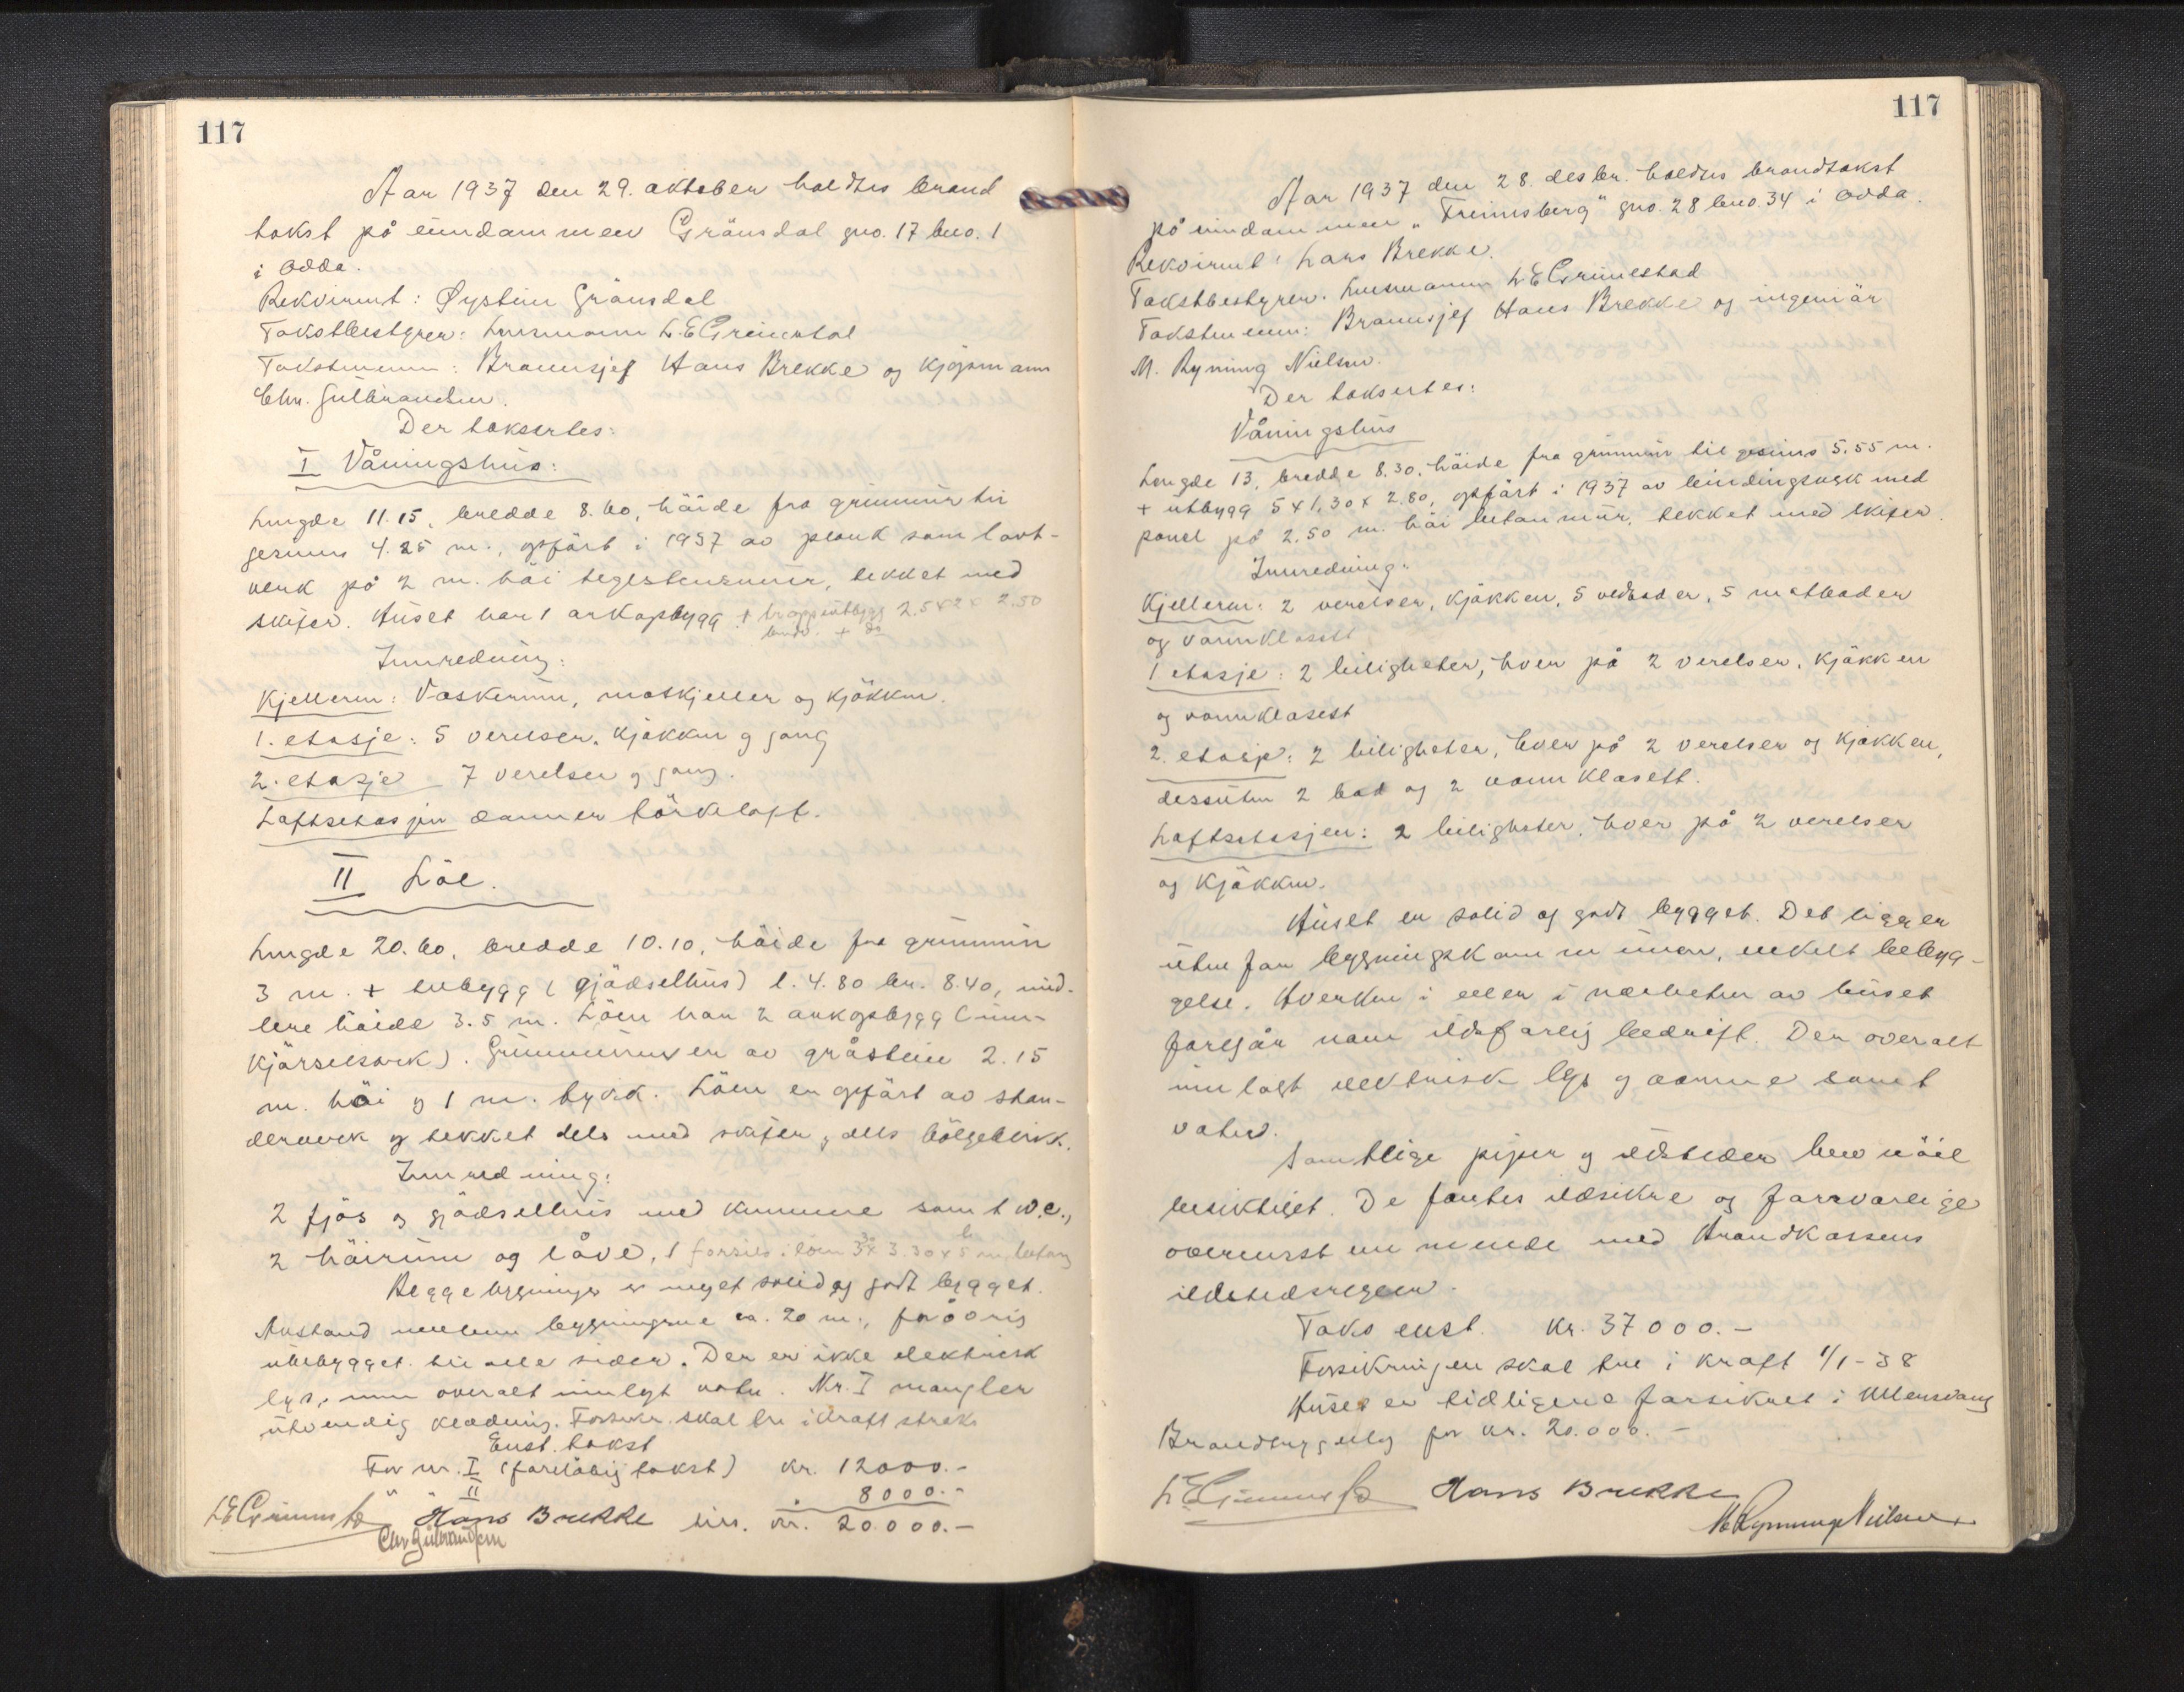 117
Aar 1937 den 29. oktober holdtes brand
takst på eiendommen Grönsdal gno. 17 bno. 1
i Odda.
Rekvirent: Øystein Grönsdal
Takstbestyrer: Lensmann L. E. Grimestad
Takstmenn: Brannsjef Hans Brekke og kjøpmann
Chr. Gulbrandsen.
Der taksertes:
I Våningshus:
Lengde 11.15, bredde 8.60, höide fra grunnmur til
gesims 4.25 m., opfört i 1937 av plank som laft-
verk på 2 m. höi teglstensmur, tekket med
skifer. Huset har 1 arkopbygg + trappeutbygg 2.5 x 2 x 2.50
Innredning:
Kjelleren: Vaskerum, matkjeller og kjökken.
1. etasje: 5 verelser, kjökken og gang
2. etasje 7 verelser og gang.
Loftsetasjen danner törkeloft.
II Löe.
Lengde 20.60, bredde 10.10, höide fra grunnmur
3 m. + tilbygg (gjödselhus) l. 4.80 br. 8.40, mid-
lere höide 3.5 m. Löen har 2 arkopbygg (inn-
kjörselsark). Grunnmuren er av gråstein 2.15
m. höi og 1 m. tykk. Löen er opfört av sten-
derverk og tekket dels med skifer og dels bölgeblikk.
Innredning:
2 fjös og gjödselhus med kumme samt w.c.,
2 höirum og låve, 1 forsilo i löen 3 x 3.30 x 5 m. betong
Begge bygninger er meget solid og godt bygget.
Avstand mellem bygningene ca. 20 m., for övrig
ubebygget til alle sider. Der er ikke elektrisk
lys, men overalt innlagt vatn. Nr. I mangler
utvendig kledning. Forsikr. skal tre i kraft straks
Enst. takst
For nr. I (foreløbig takst) kr. 12000.-
" " II " 8000.-
L E Grimestad Hans Brekke tils. kr. 20.000.-
Chr Gulbrandsen
117
Aar 1937 den 28. desbr. holdtes brandtakst
på eiendommen "Freimsberg" gno. 28 bno. 34 i Odda.
Rekvirent: Lars Brekke.
Takstbestyrer. Lensmann L E Grimestad
Takstmenn: Brannsjef Hans Brekke og ingeniör
M. Ryning Nielsen.
Der takseertes:
Våningshus
Lengde 13, bredde 8.30, höide fra grunnmur til gesims 5.55 m.
+ utbygg 5 x 1.30 x 2.80, opfört i 1937 av bindingsverk med
panel på 2.50 m. höi betonmur, tekket med skifer.
Innredning:
Kjelleren: 2 verelser, kjökken, 5 vedboder, 5 matboder
og vannklosett
1 etasje: 2 leiligheter, hver på 2 verelser, kjökken
og vannklosett
2. etasje: 2 leiligheter, hver på 2 verelser og kjökken,
dessuten 2 bad og 2 vannklosett.
Loftsetasjen: 2 leiligheter, hver på 2 verelser
og kjökken.
Huset er solid og godt bygget. Det ligger
uten for bygningskommunen, enkelt bebyg-
gelse. Hverken i eller i nærheten av huset
foregår noen ildsfarlig bedrift. Der overalt
innlagt elektrisk lys og varme samt
vatn.
Samtlige piper og ildsteder blev nöie
besiktiget. De fantes ildsikre og forsvarlige
overensstemmende med Brandkassens
ildstedsregler.
Takst enst. kr. 37000.-
Forsikringen skal tre i kraft 1/1-38
Huset er tidligere forsikret i Ullensvang
Brandtrygdelag for kr. 20.000.-
L E Grimestad Hans Brekke
M Ryning Nielsen